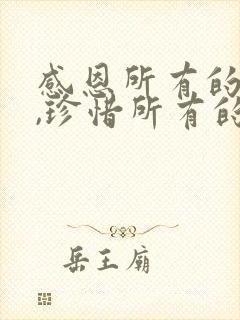 感恩所有的
,珍惜所有的
岳王廟